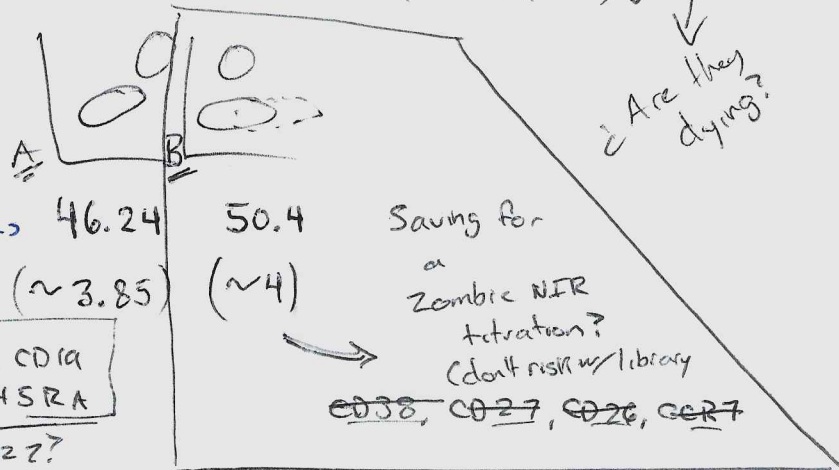 ¿Are they
dying?
A
B
46.24
50.4
(~3.85)
(~4)
Saving for
a
Zombie NIR
titration?
(don't risk w/ library
CD38, CD27, CD26, CCR7
CD19
45RA
22?